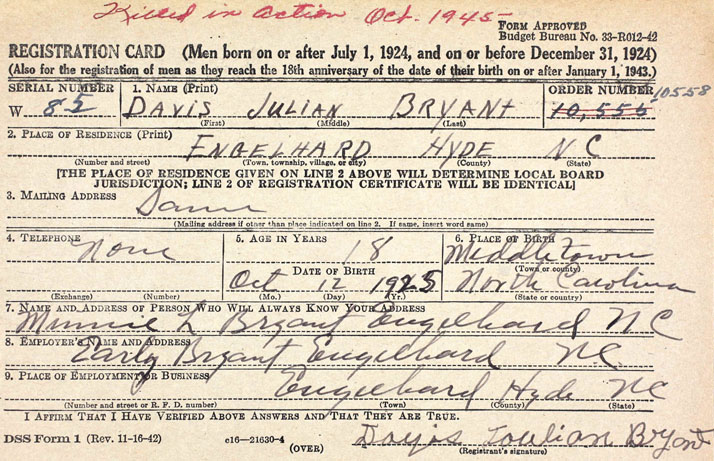 Killed in action Oct. 1945
FORM APPROVED
Budget Bureau No. 33-R012-42
REGISTRATION CARD (Men born on or after July 1, 1924, and on or before December 31, 1924)
(Also for the registration of men as they reach the 18th anniversary of the date of their birth on or after January 1, 1943.)
SERIAL NUMBER 1. NAME (Print) ORDER NUMBER 10558
W 82 DAVIS JULIAN BRYANT 10,555
(First) (Middle) (Last)
2. PLACE OF RESIDENCE (Print)
ENGELHARD HYDE N C
(Number and street) (Town, township, village, or city) (County) (State)
[THE PLACE OF RESIDENCE GIVEN ON LINE 2 ABOVE WILL DETERMINE LOCAL BOARD
JURISDICTION; LINE 2 OF REGISTRATION CERTIFICATE WILL BE IDENTICAL]
3. MAILING ADDRESS
Same
(Mailing address if other than place indicated on line 2. If same, insert word same)
4. TELEPHONE 5. AGE IN YEARS 6. PLACE OF BIRTH
None 18 Middletown
DATE OF BIRTH (Town or county)
Oct 12 1925 North Carolina
(Exchange) (Number) (Mo.) (Day) (Yr.) (State or country)
7. NAME AND ADDRESS OF PERSON WHO WILL ALWAYS KNOW YOUR ADDRESS
Minnie L Bryant Engelhard NC
8. EMPLOYER'S NAME AND ADDRESS
Early Bryant Engelhard NC
9. PLACE OF EMPLOYMENT OR BUSINESS
Engelhard Hyde NC
(Number and street or R. F. D. number) (Town) (County) (State)
I AFFIRM THAT I HAVE VERIFIED ABOVE ANSWERS AND THAT THEY ARE TRUE.
DSS Form 1 (Rev. 11-16-42) c16-21630-4 (OVER)
(Registrant's signature)